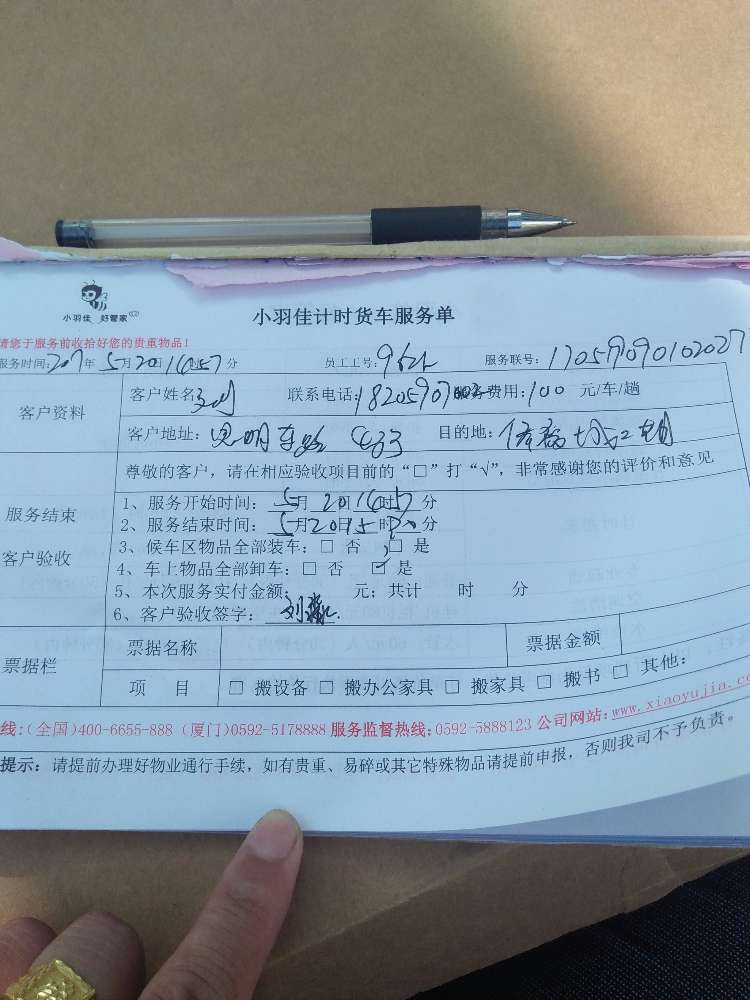 小羽佳 好管家
小羽佳计时货车服务单
请您于服务前收拾好您的贵重物品！
服务时间：2017年5月20日16时57分 员工工号： 服务联号：170579090102027
客户资料
客户姓名 联系电话：1820590 服务费用：100 元/车/趟
客户地址：思明 目的地：
尊敬的客户，请在相应验收项目前的“□”打“√”，非常感谢您的评价和意见
服务结束
客户验收
1、服务开始时间：5月20日16时57分
2、服务结束时间：5月20日 时 分
3、候车区物品全部装车：□ 否 □ 是
4、车上物品全部卸车：□ 否 ☑ 是
5、本次服务实付金额： 元；共计 时 分
6、客户验收签字：刘
票据栏
票据名称 票据金额
项 目 □ 搬设备 □ 搬办公家具 □ 搬家具 □ 搬书 □ 其他：
线：(全国)400-6655-888 (厦门)0592-5178888 服务监督热线：0592-5888123 公司网站：www.xiaoyujia.co
提示：请提前办理好物业通行手续，如有贵重、易碎或其它特殊物品请提前申报，否则我司不予负责。